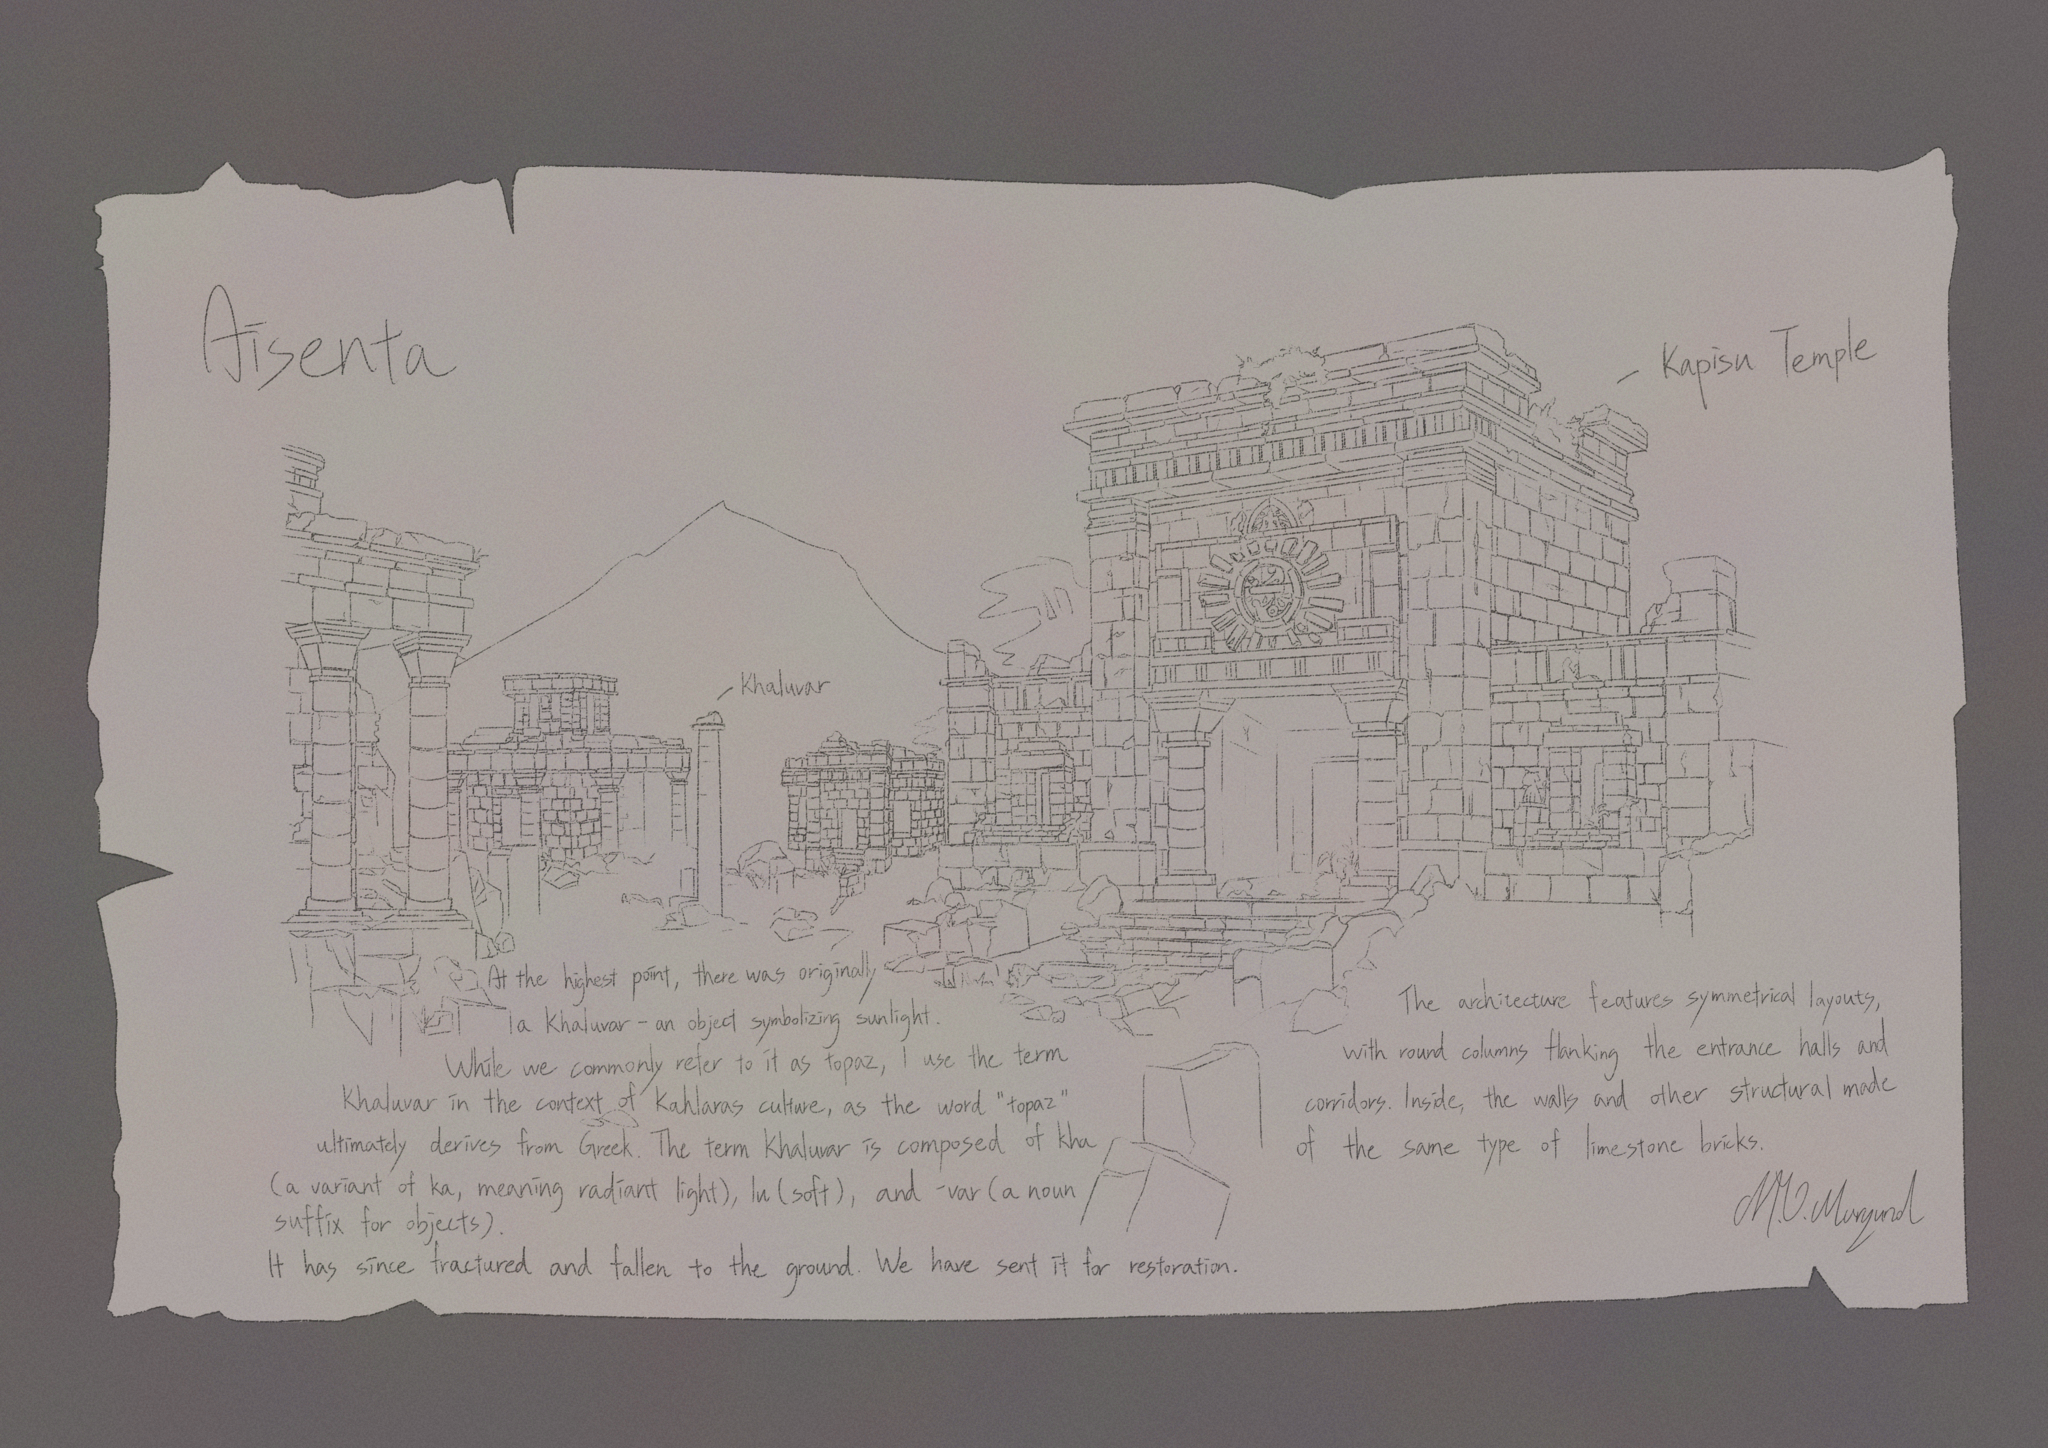 Aisenta
Kapisu Temple
Khaluvar
At the highest point, there was originally
a Khaluvar - an object symbolizing sunlight.
While we commonly refer to it as topaz, I use the term
Khaluvar in the context of Kahlaras culture, as the word "topaz"
ultimately derives from Greek. The term Khaluvar is composed of kha
(a variant of ka, meaning radiant light), lu (soft), and -var (a noun
suffix for objects).
It has since fractured and fallen to the ground. We have sent it for restoration.
The architecture features symmetrical layouts,
with round columns flanking the entrance halls and
corridors. Inside, the walls and other structural made
of the same type of limestone bricks.